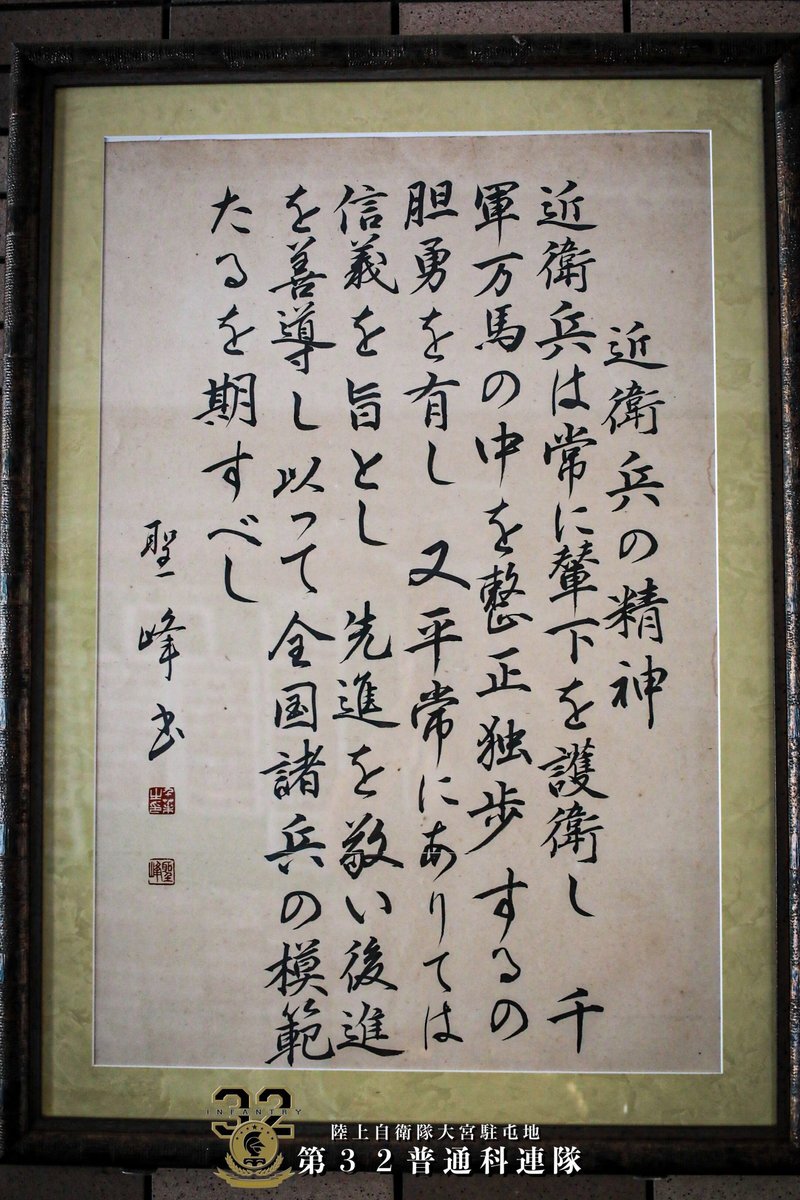 近衛兵の精神
近衛兵は常に輦下を護衛し 千
軍万馬の中を整正独歩するの
胆勇を有し 又平常にありては
信義を旨とし 先進を敬い後進
を善導し以って全国諸兵の模範
たるを期すべし
聖峰書
聖峰
32
INFANTRY
陸上自衛隊大宮駐屯地
第32普通科連隊